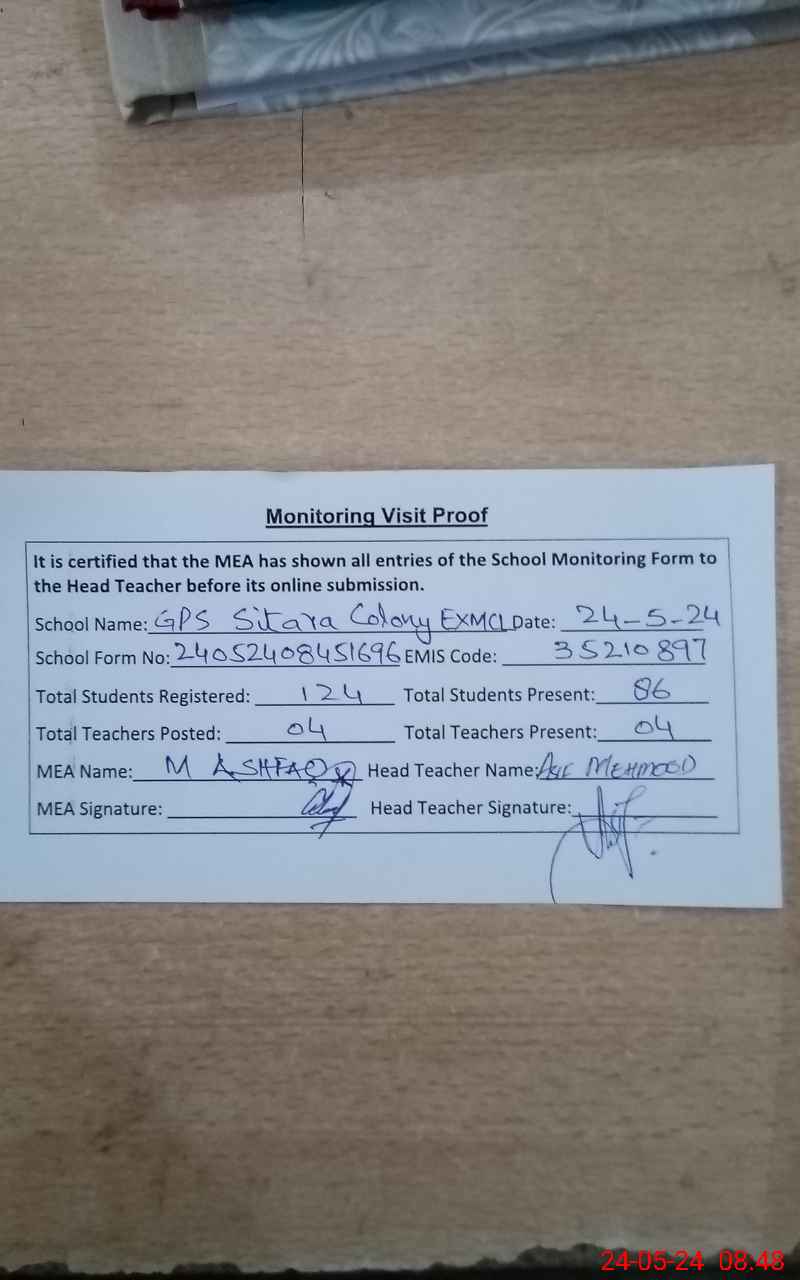 Monitoring Visit Proof
It is certified that the MEA has shown all entries of the School Monitoring Form to
the Head Teacher before its online submission.
School Name: GPS Sitara Colony EXMCL Date: 24-5-24
School Form No: 24052408451696 EMIS Code: 35210897
Total Students Registered: 124 Total Students Present: 86
Total Teachers Posted: 04 Total Teachers Present: 04
MEA Name: M ASHFAQ Head Teacher Name: ASIF MEHMOOD
MEA Signature: Head Teacher Signature:
24-05-24 08:48